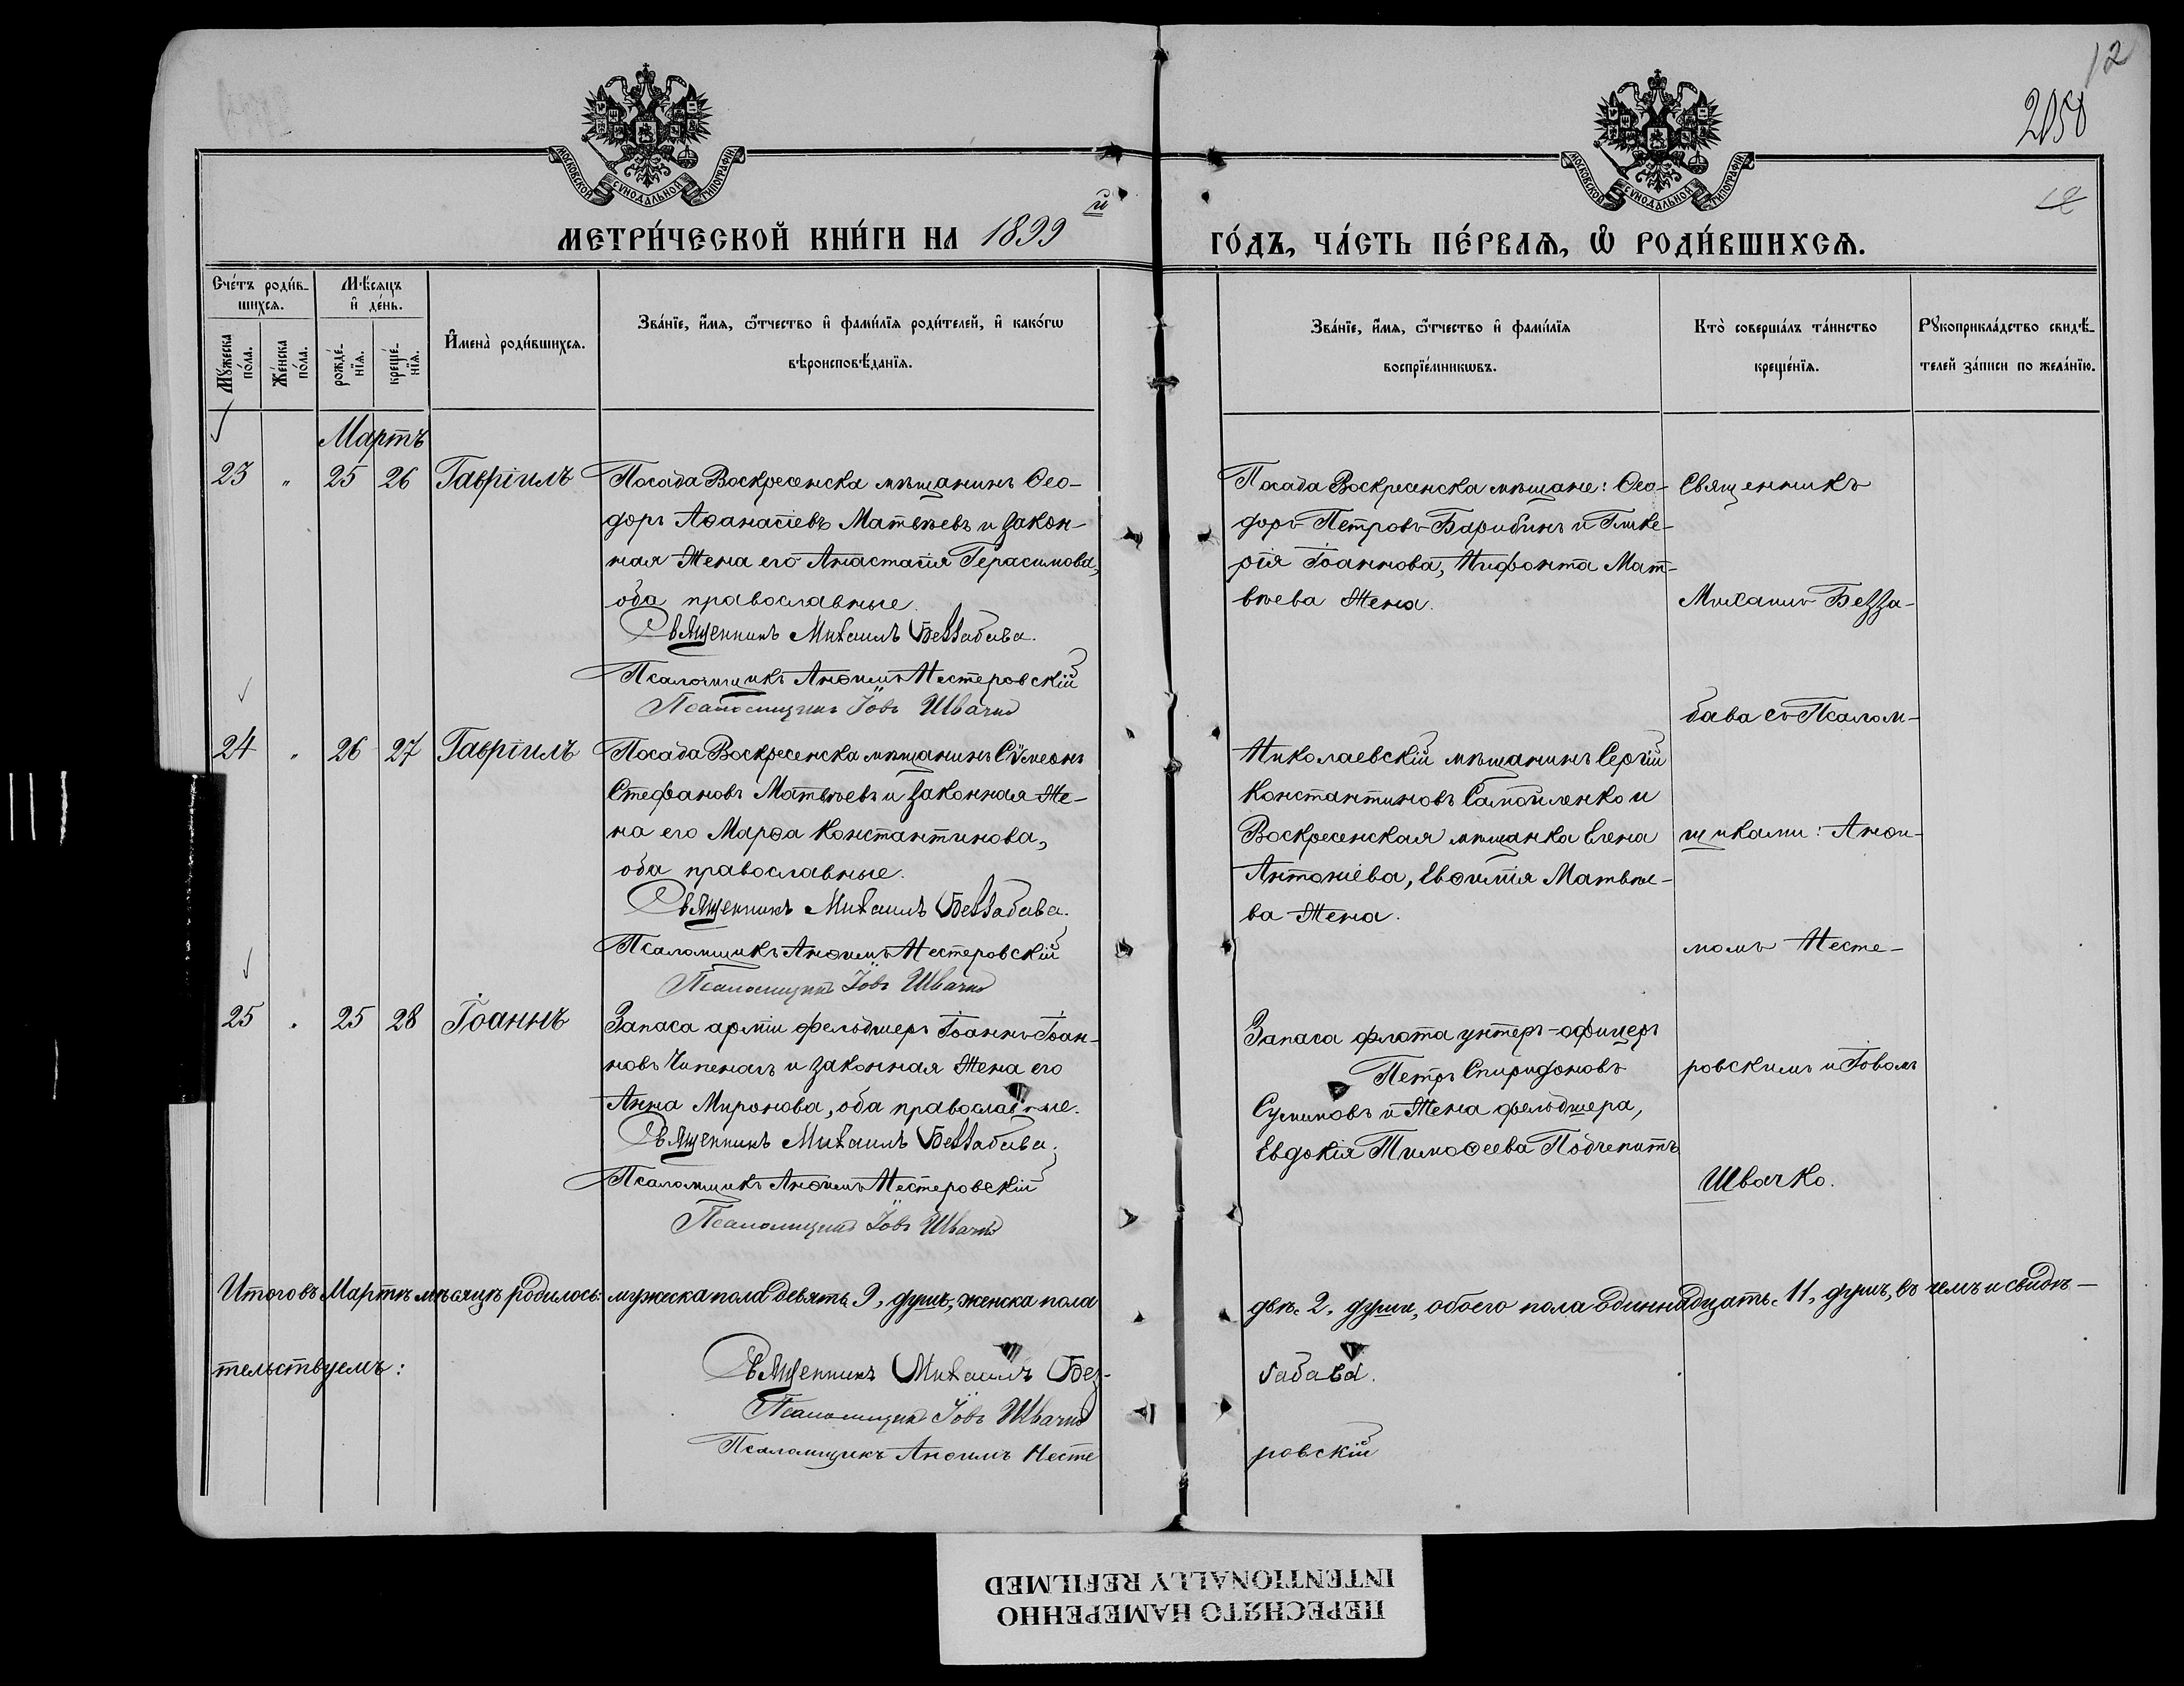 12
2058
12
МОСКОВСКОЙ СѴНОДАЛЬНОЙ ТИПОГРАФІИ
МОСКОВСКОЙ СѴНОДАЛЬНОЙ ТИПОГРАФІИ
МЕТРИ́ЧЕСКОЙ КНИ́ГИ НА 1899 й
ГО́ДЪ, ЧА́СТЬ ПЕ́РВАѦ, Ѿ РОДИ́ВШИХСѦ.
Сче́тъ роди́в-
шихся.
Мѣ́сяцъ
и҆ де́нь.
Мꙋ́жеска
по́ла.
Же́нска
по́ла.
рожде́-
нїя.
креще́-
нїя.
И҆мена̀ роди́вшихся.
Зва́нїе, и҆́мя, ѻ҆́тчество и҆ фами́лїя роди́телей, и҆ како́гѡ
вѣроисповѣ́данїя.
Зва́нїе, и҆́мя, ѻ҆́тчество и҆ фами́лїя
воспрїе́мникѡвъ.
Кто̀ соверша́лъ та́инство
креще́нїя.
Рꙋкоприкла́дство свидѣ́-
телей за́писи по жела́нїю.
Мартъ
23 " 25 26 Гавріилъ
Посада Воскресенска мѣщанинъ Ѳео-
доръ Аѳанасіевъ Матвѣевъ и закон-
ная жена его Анастасія Герасимова,
оба православные.
Священникъ Михаилъ Беззабава.
Псаломщикъ Анѳимъ Нестеровскій
Псаломщикъ Іовъ Швачко
Посада Воскресенска мѣщане: Ѳео-
доръ Петровъ Барибинъ и Глике-
рія Іоаннова, Нифонта Мат-
вѣева жена.
24 " 26 27 Гавріилъ
Посада Воскресенска мѣщанинъ Сѵмеонъ
Стефановъ Матвѣевъ и законная же-
на его Марѳа Константинова,
оба православные.
Священникъ Михаилъ Беззабава.
Псаломщикъ Анѳимъ Нестеровскій
Псаломщикъ Іовъ Швачко
Николаевскій мѣщанинъ Сергій
Константиновъ Самойленко и
Воскресенская мѣщанка Елена
Антоніева, Евѳимія Матвѣе-
ва жена.
25 " 25 28 Іоаннъ
Запаса арміи фельдшеръ Іоаннъ Іоан-
новъ Чипенагъ и законная жена его
Анна Миронова, оба православные.
Священникъ Михаилъ Беззабава.
Псаломщикъ Анѳимъ Нестеровскій
Псаломщикъ Іовъ Швачко
Запаса флота унтеръ-офицеръ
Петръ Спиридоновъ
Сулимовъ и жена фельдшера,
Евдокія Тимоѳеева Подчепитъ
Священникъ
Михаилъ Безза-
бава съ Псалом-
щиками: Анѳи-
момъ Несте-
ровскимъ и Іовомъ
Швачко.
Итого въ Мартѣ мѣсяцѣ родилось: мужеска пола девять, 9, душъ, женска пола
двѣ, 2, души, обоего пола одиннадцать, 11, душъ, въ чемъ и свидѣ-
тельствуемъ:
Священникъ Михаилъ Без-
забава.
Псаломщикъ Іовъ Швачко
Псаломщикъ Анѳимъ Несте
ровскій
ПЕРЕСНЯТО НАМЕРЕННО
INTENTIONALLY REFILMED